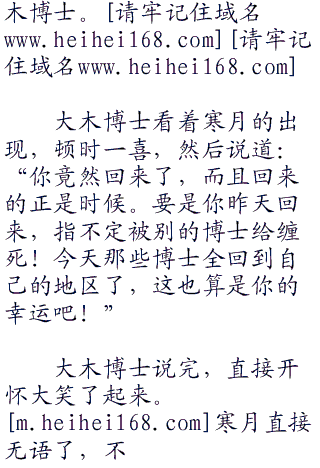 木博士。[请牢记住域名
www.heihei168.com][请牢记
住域名www.heihei168.com]
大木博士看着寒月的出
现，顿时一喜，然后说道：
“你竟然回来了，而且回来
的正是时候。要是你昨天回
来，指不定被别的博士给缠
死！今天那些博士全回到自
己的地区了，这也算是你的
幸运吧！”
大木博士说完，直接开
怀大笑了起来。
[m.heihei168.com]寒月直接
无语了，不